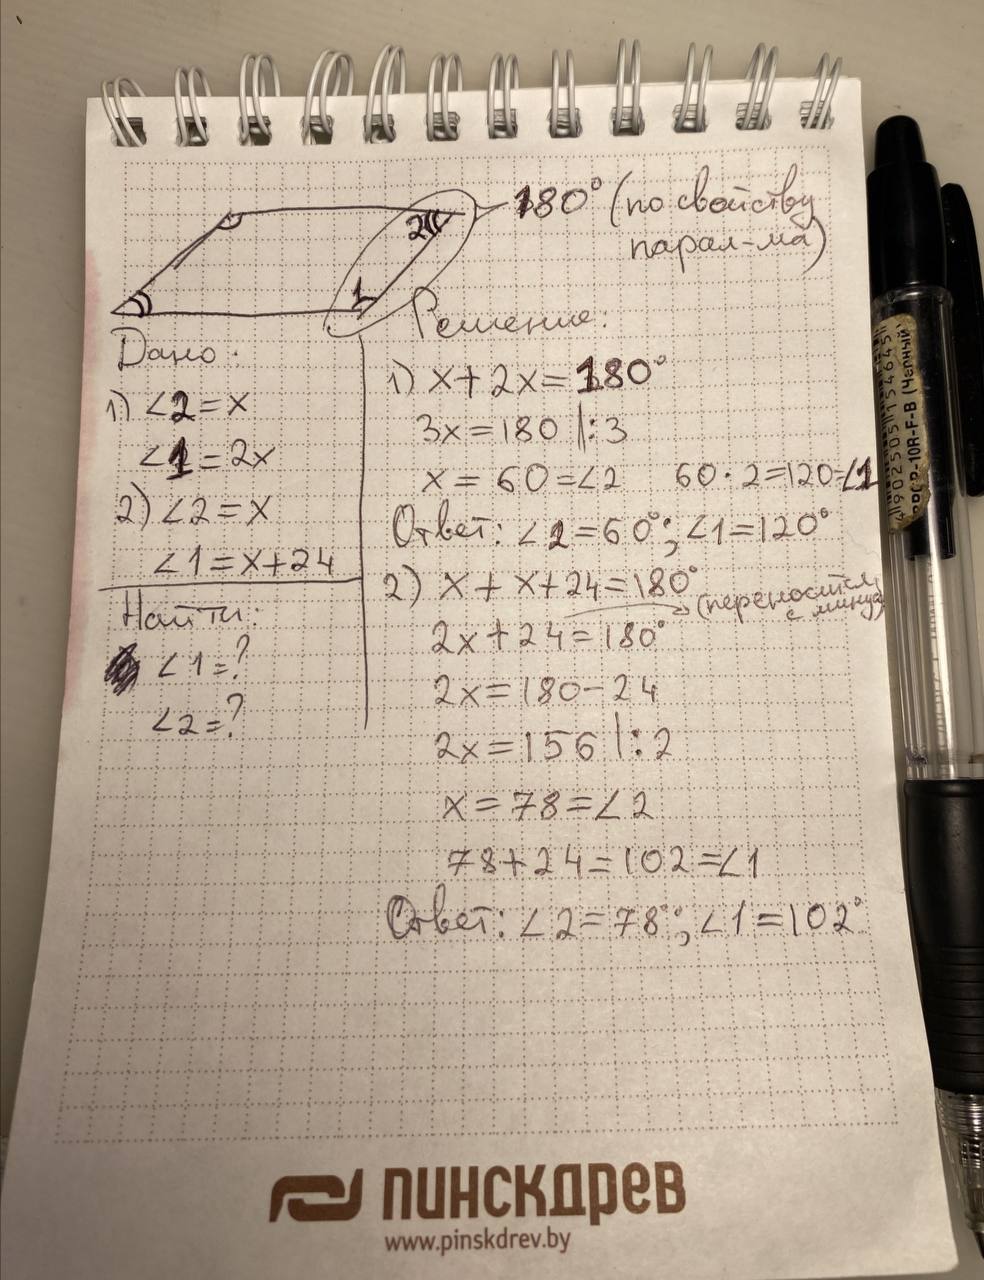 2
1
180° (по свойству
парал-ма)
Дано:
1) ∠2=x
∠1=2x
2) ∠2=x
∠1=x+24
Найти:
∠1=?
∠2=?
Решение:
1) x+2x=180°
3x=180 |:3
x=60=∠2 60·2=120=∠1
Ответ: ∠2=60°; ∠1=120°
2) x+x+24=180°
(переносится
с минусом)
2x+24=180°
2x=180-24
2x=156 |:2
x=78=∠2
78+24=102=∠1
Ответ: ∠2=78°; ∠1=102°
ПИНСКДРЕВ
www.pinskdrev.by
4902505154645
-10R-F-B (Черный